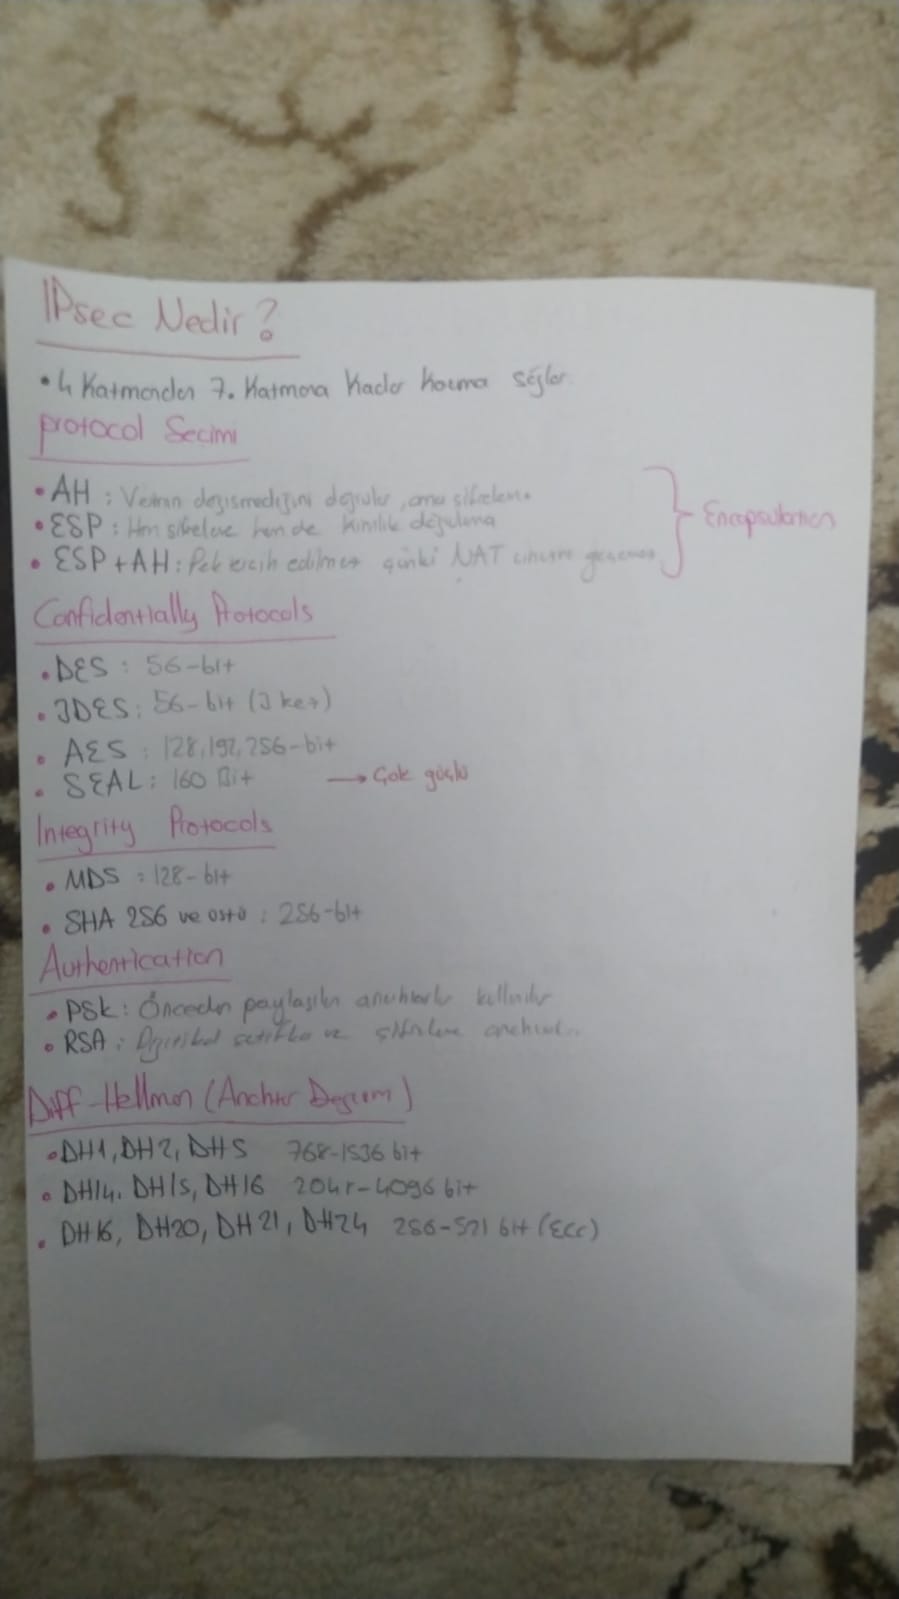 IPsec Nedir?
• 4 Katmandan 7. Katmana Kadar Koruma Sağlar.
protocol Secimi
• AH : Verinin değismediğini doğrular, ama sifreleme
• ESP : Hem sifreleme hem de kimlik doğrulama
Encapsulation
• ESP+AH : Pek tercih edilmez çünkü NAT geçemez
Confidentially Protocols
• DES : 56-bit
• 3DES : 56-bit (3 key)
• AES : 128,192,256-bit
• SEAL : 160 Bit → Çok güçlü
Integrity Protocols
• MD5 : 128-bit
• SHA 256 ve üstü : 256-bit
Authentication
• PSK : Önceden paylaşılan anahtarlar kullanılır
• RSA : ve şifreleme
Diff-Hellman (Anahtar Değisim)
• DH1, DH2, DH5 768-1536 bit
• DH14, DH15, DH16 2048-4096 bit
• DH20, DH21, DH24 256-521 bit (ECC)